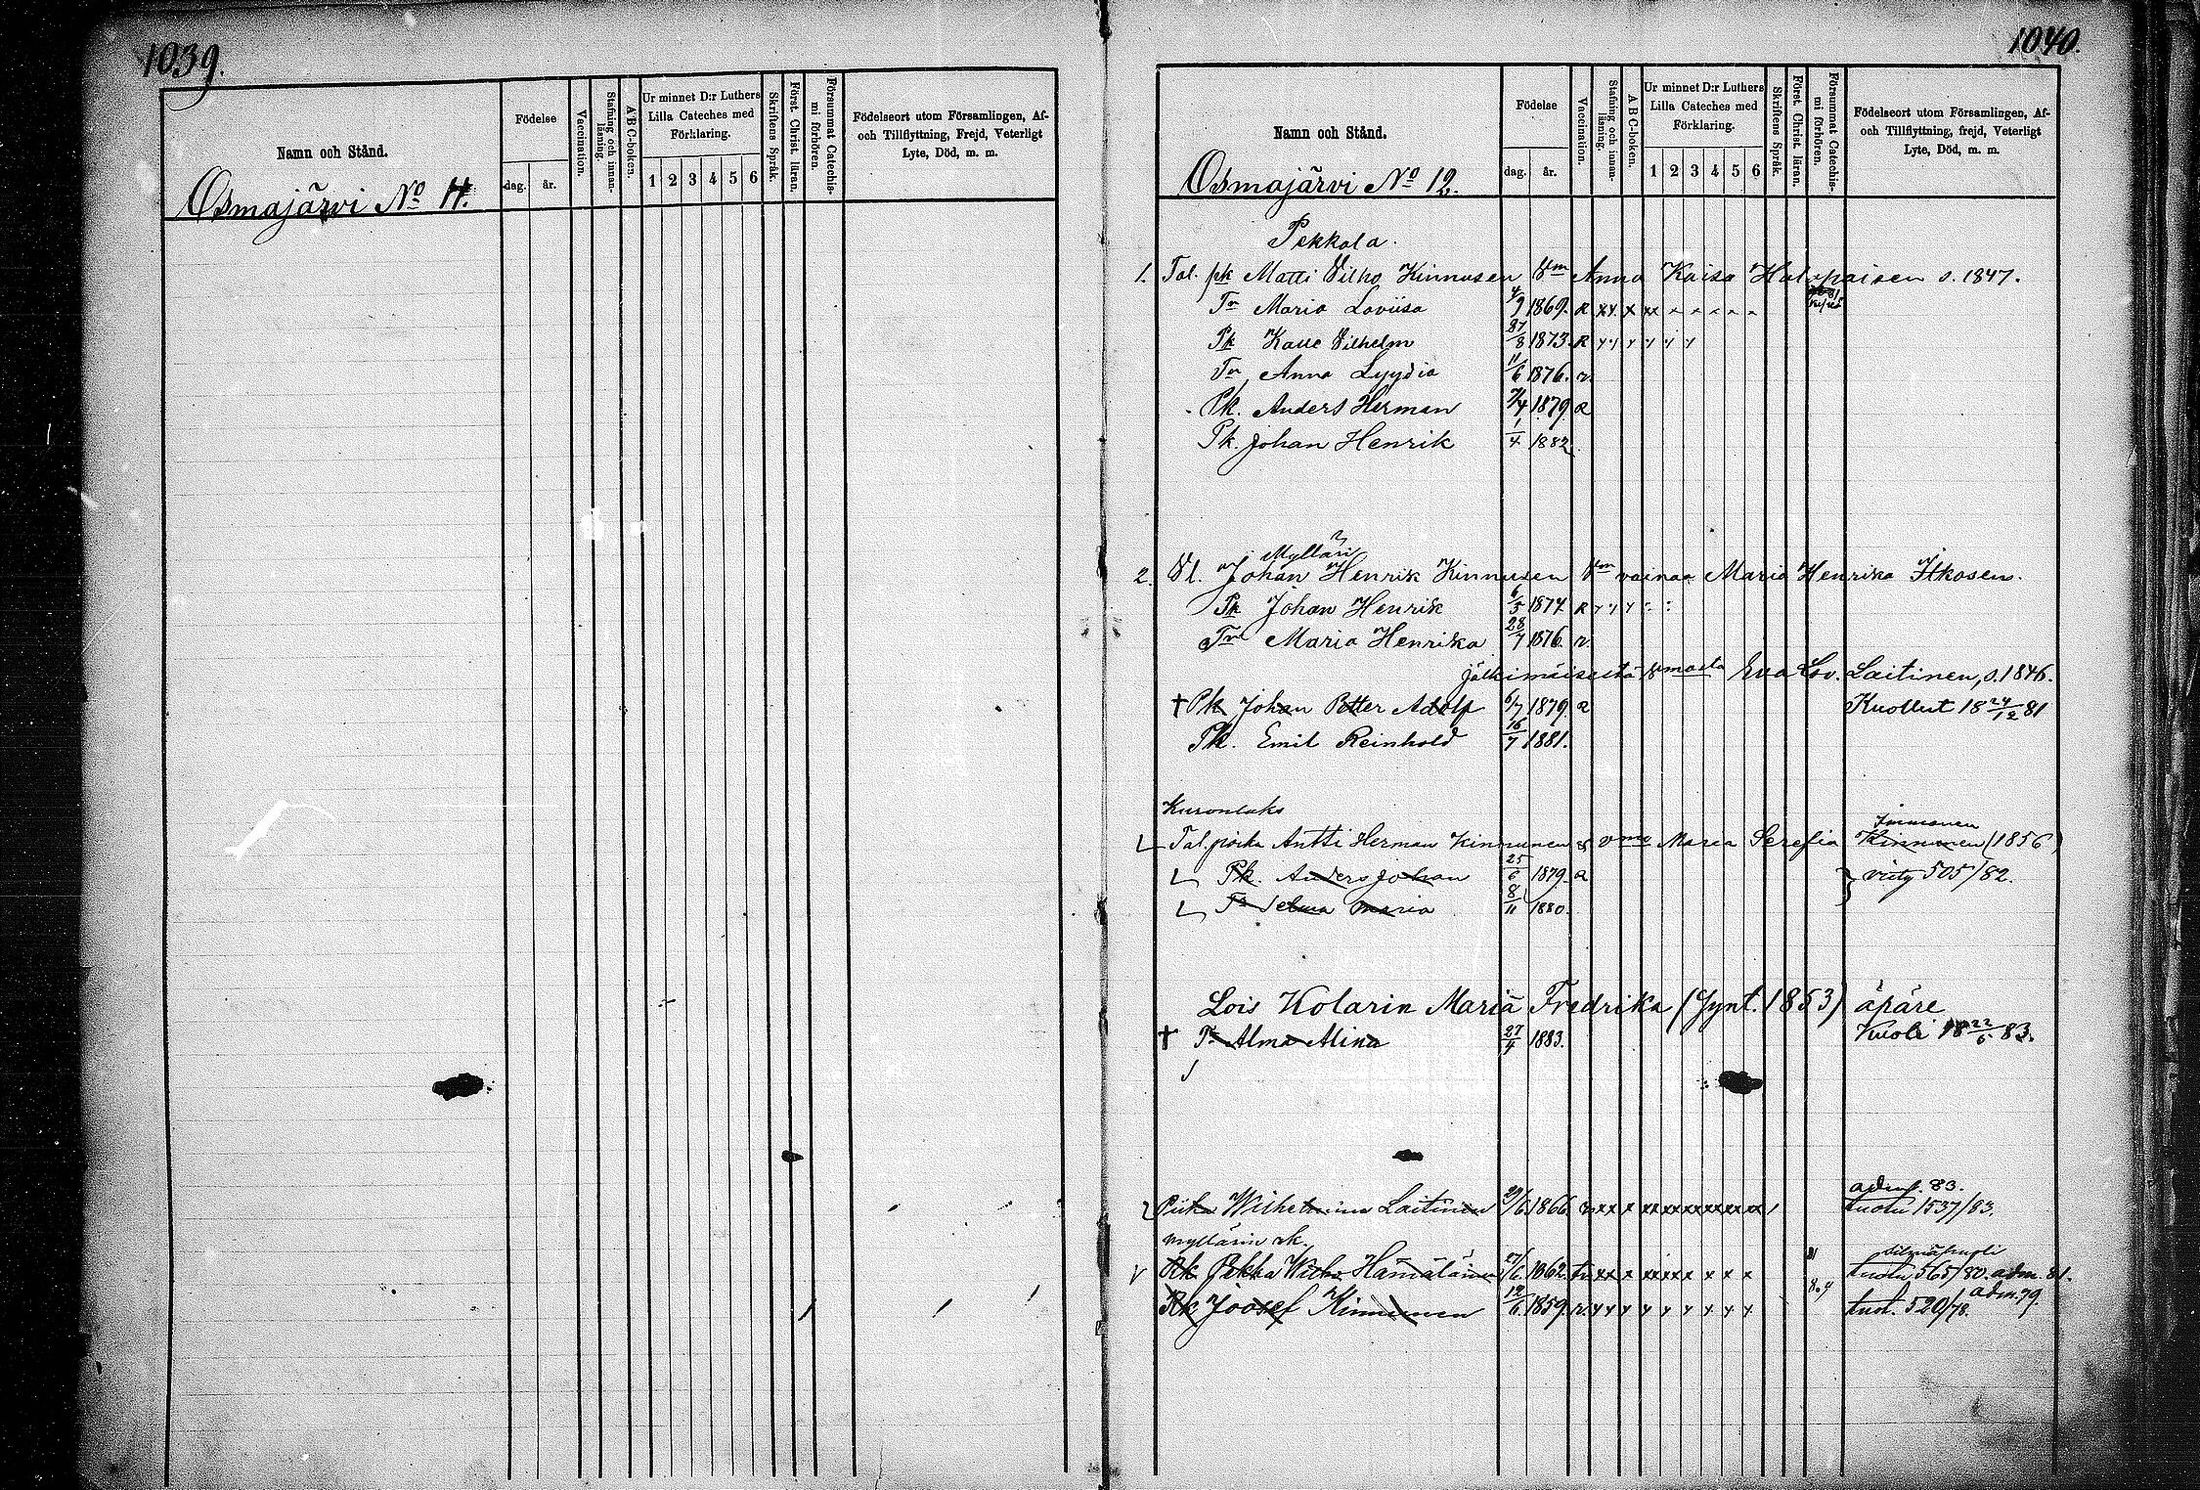 1039.
Namn och Stånd.
Födelse
dag.
år.
Vaccination.
Stafning och innanläsning.
A B C-boken.
Ur minnet D:r Luthers
Lilla Cateches med
Förklaring.
1 2 3 4 5 6
Skriftens Språk.
Först. Christ. läran.
Försummat Catechismi förhören.
Födelseort utom Församlingen, Af-
och Tillflyttning, Frejd, Veterligt
Lyte, Död, m. m.
Osmajärvi No
1040.
Namn och Stånd.
Födelse
dag.
år.
Vaccination.
Stafning och innanläsning.
A B C-boken.
Ur minnet D:r Luthers
Lilla Cateches med
Förklaring.
1 2 3 4 5 6
Skriftens Språk.
Först. Christ. läran.
Försummat Catechismi förhören.
Födelseort utom Församlingen, Af-
och Tillflyttning, frejd, Veterligt
Lyte, Död, m. m.
Osmajärvi No 12.
Pekkola.
1. Tal. pk Matti Vilho Kinnusen Vm Anna Kaisa Holopaisen s. 1847.
Tr Maria Loviisa 4/9 1869. R xx x xx
Pk Kalle Vilhelm 27/8 1873. R
Tr Anna Lyydia 11/6 1876. r.
Pk. Anders Herman 1879 R
Pk. Johan Henrik 1/4 1882
Mylläri
2. Vl. Johan Henrik Kinnusen Vm vainaa Maria Henrika Itkosen.
Pk Johan Henrik 6/5 1874 R
Tr Maria Henrika 28/7 1876. r.
jälkimäisestä Vmosta Eva Lov. Laitinen, s. 1846.
† Pk Johan Petter Adolf 6/7 1879. R Kuollut 18 24/12 81
Pk. Emil Reinhold 16/7 1881.
Kuronlaks
Immonen
Tal. poika Antti Herman Kinnunen & vmo Maria Serefia Kinnunen (1856)
Pk. Anders Johan 25/6 1879. R
viety 505/82.
Tr Selma Maria 8/11 1880.
Lois Kolarin Maria Fredrika (Synt. 1853) äpäre
† Tr Alma Alina 27/4 1883. Kuoli 18 22/6 83.
adm. 83.
Piika Wilhelmina Laitinen 1866 xx x xx xx xx xx xx xx tuotu 1537/83.
myllärin rk.
Rk Pekka Wilho Hämäläinen 1862 xx x xx xx x x x x 81 tuotu 565/80. adm. 81.
Rk Joosef Kinnunen 12/6 1859. r. tuot. 520/78. adm. 79.